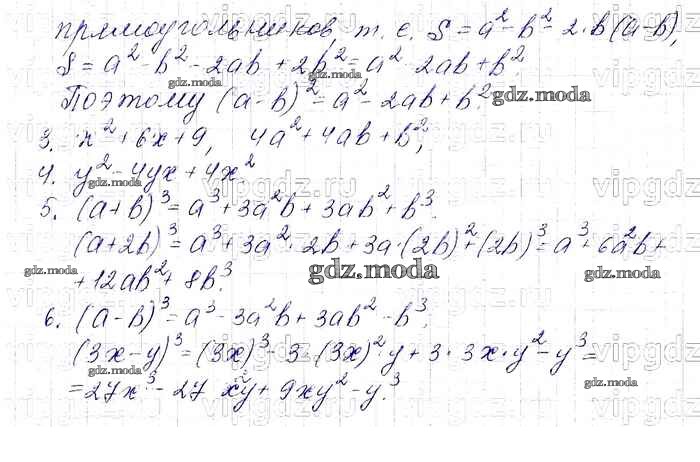 прямоугольников т. е. S = a² - b² - 2·b(a-b),
S = a² - b² - 2ab + 2b² = a² - 2ab + b²
Поэтому (a-b)² = a² - 2ab + b²
3. x² + 6x + 9, 4a² + 4ab + b²,
4. y² - 4yx + 4x²
5. (a+b)³ = a³ + 3a²b + 3ab² + b³.
(a+2b)³ = a³ + 3a²·2b + 3a·(2b)² + (2b)³ = a³ + 6a²b +
+ 12ab² + 8b³.
6. (a-b)³ = a³ - 3a²b + 3ab² - b³,
(3x-y)³ = (3x)³ - 3·(3x)²·y + 3·3x·y² - y³ =
= 27x³ - 27x²y + 9xy² - y³.
gdz.moda
vipgdz.ru